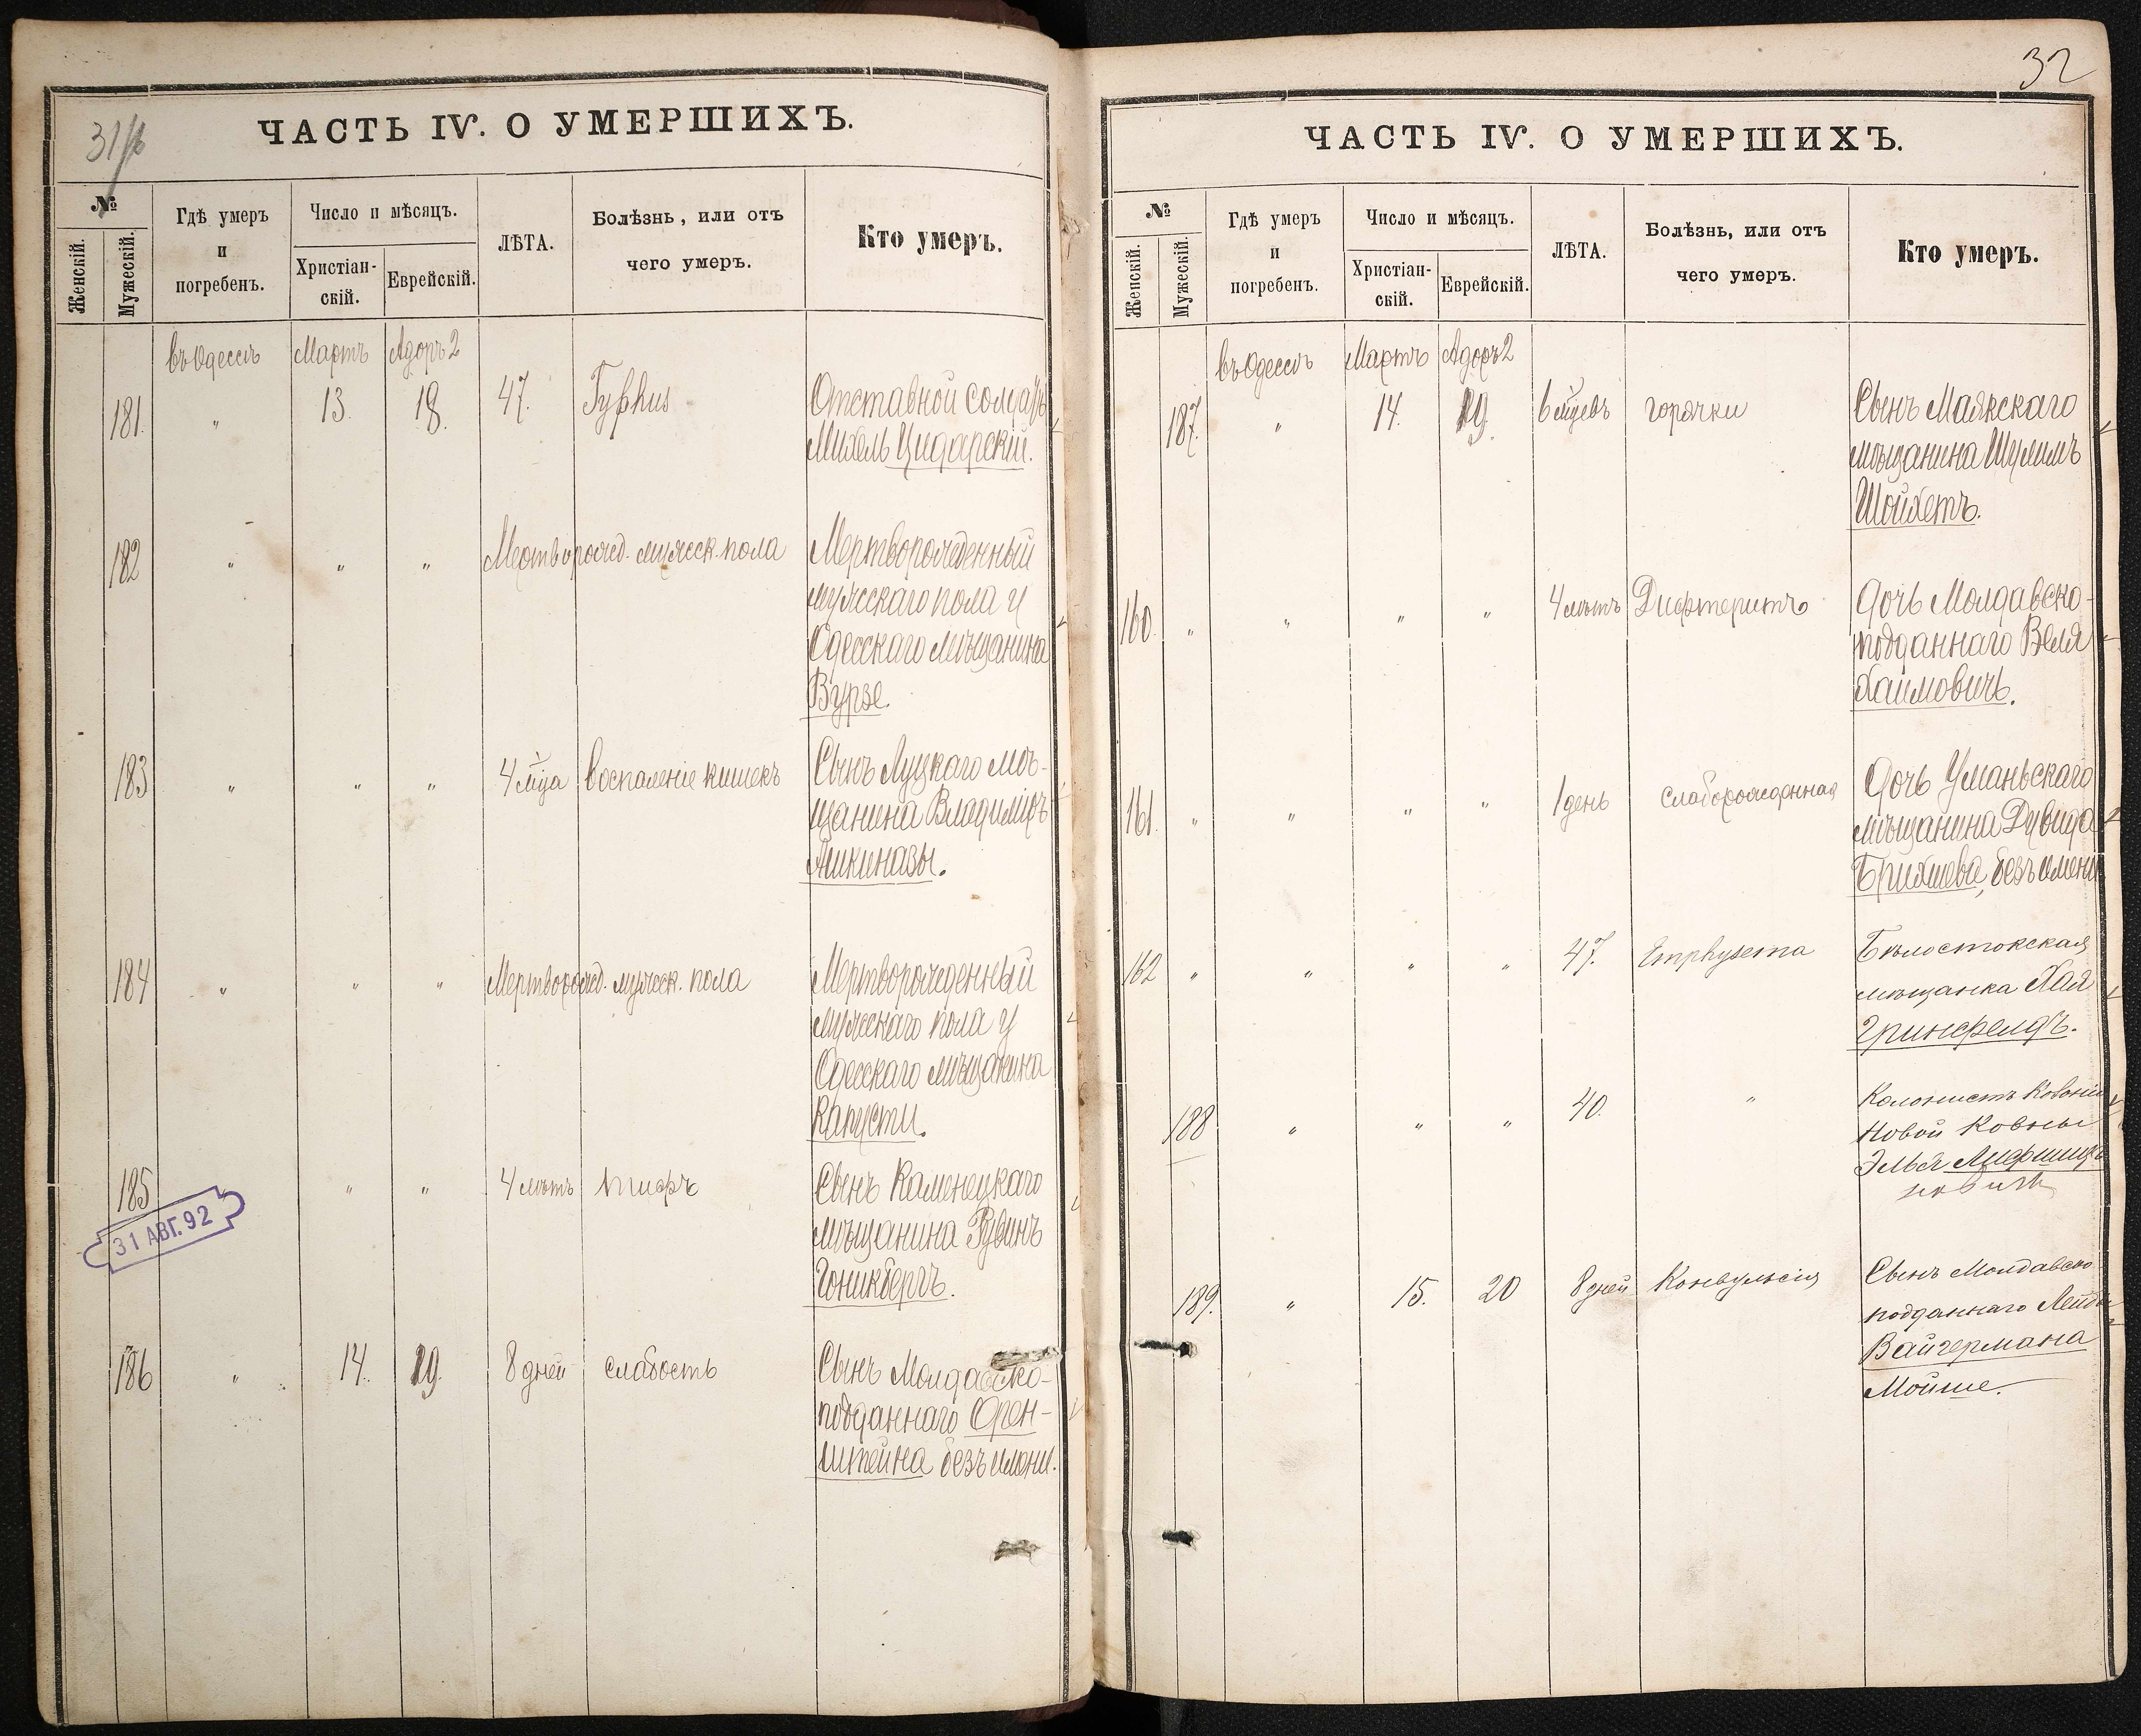 31/б
ЧАСТЬ IV. О УМЕРШИХЪ.
№
Женскій.
Мужескій.
Гдѣ умеръ
и
погребенъ.
Число и мѣсяцъ.
Христіан-
скій.
Еврейскій.
ЛѢТА.
Болѣзнь, или отъ
чего умеръ.
Кто умеръ.
въ Одессѣ Мартъ Адоръ 2
181. " 13. 18. 47. Typhus Отставной солдатъ
Михель Цидарскій.
182 " " " Мертворожд. мужеск. пола Мертворожденный
мужескаго пола у
Одесскаго мѣщанина
Вурзе.
183 " " " 4 м̃ца воспаленіе кишекъ Сынъ Луцкаго мѣ-
щанина Владиміръ
Ашкиназы.
184 " " " Мертворожд. мужеск. пола Мертворожденный
мужескаго пола у
Одесскаго мѣщанина
Капусты.
185 " " " 4 лѣтъ тифъ Сынъ Каменецкаго
мѣщанина Рувинъ
Гоникбергъ.
31 АВГ. 92
186 " 14. 19. 8 дней слабость Сынъ Молдавско-
подданнаго Орен-
штейна безъ имени.
32
ЧАСТЬ IV. О УМЕРШИХЪ.
№
Женскій.
Мужескій.
Гдѣ умеръ
и
погребенъ.
Число и мѣсяцъ.
Христіан-
скій.
Еврейскій.
ЛѢТА.
Болѣзнь, или отъ
чего умеръ.
Кто умеръ.
въ Одессѣ Мартъ Адоръ 2
187. " 14. 19. 6 м̃цевъ горячки Сынъ Маякскаго
мѣщанина Шулимъ
Шойхетъ.
160. " " " " 4 лѣтъ Дифтеритъ Дочь Молдавско-
подданнаго Веля
Хаимовичъ.
161. " " " " 1 день слаборожденная Дочь Уманьскаго
мѣщанина Дувида
Брихшева, безъ имени
162 " " " " 47. Emphysema Бѣлостокская
мѣщанка Хая
Гринфелдъ.
188 " " " 40. " Колонистъ Колоніи
Новой Ковны
Элья Лифшиц
новичъ
189. " 15. 20 8 дней Конвульсія Сынъ Молдавско
подданнаго Лейбы
Вайгермана
Мойше.